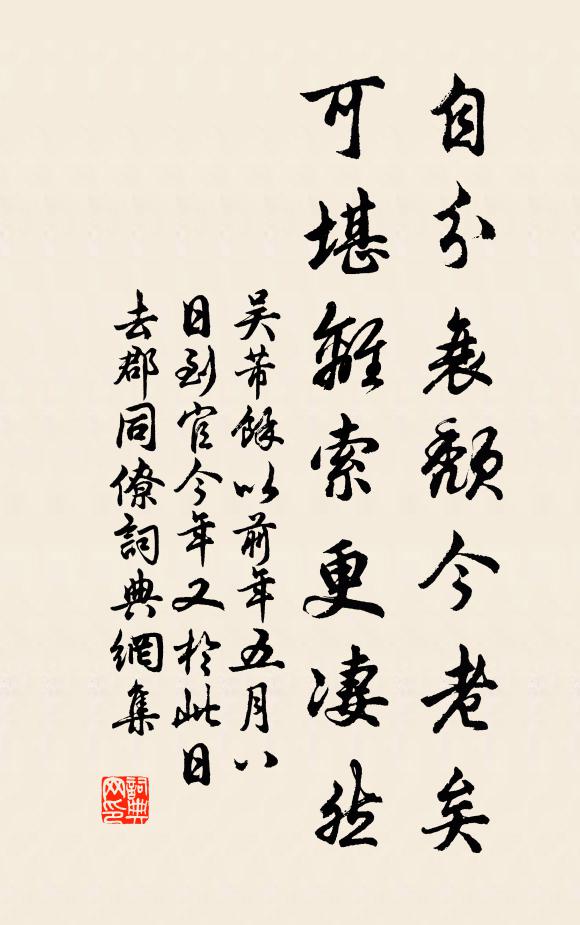 自分衰頹今老矣
可堪離索更凄然
吴芾餘以前年五月八
日到官今年又於此日
去郡同僚詞典網集
詞典
网印